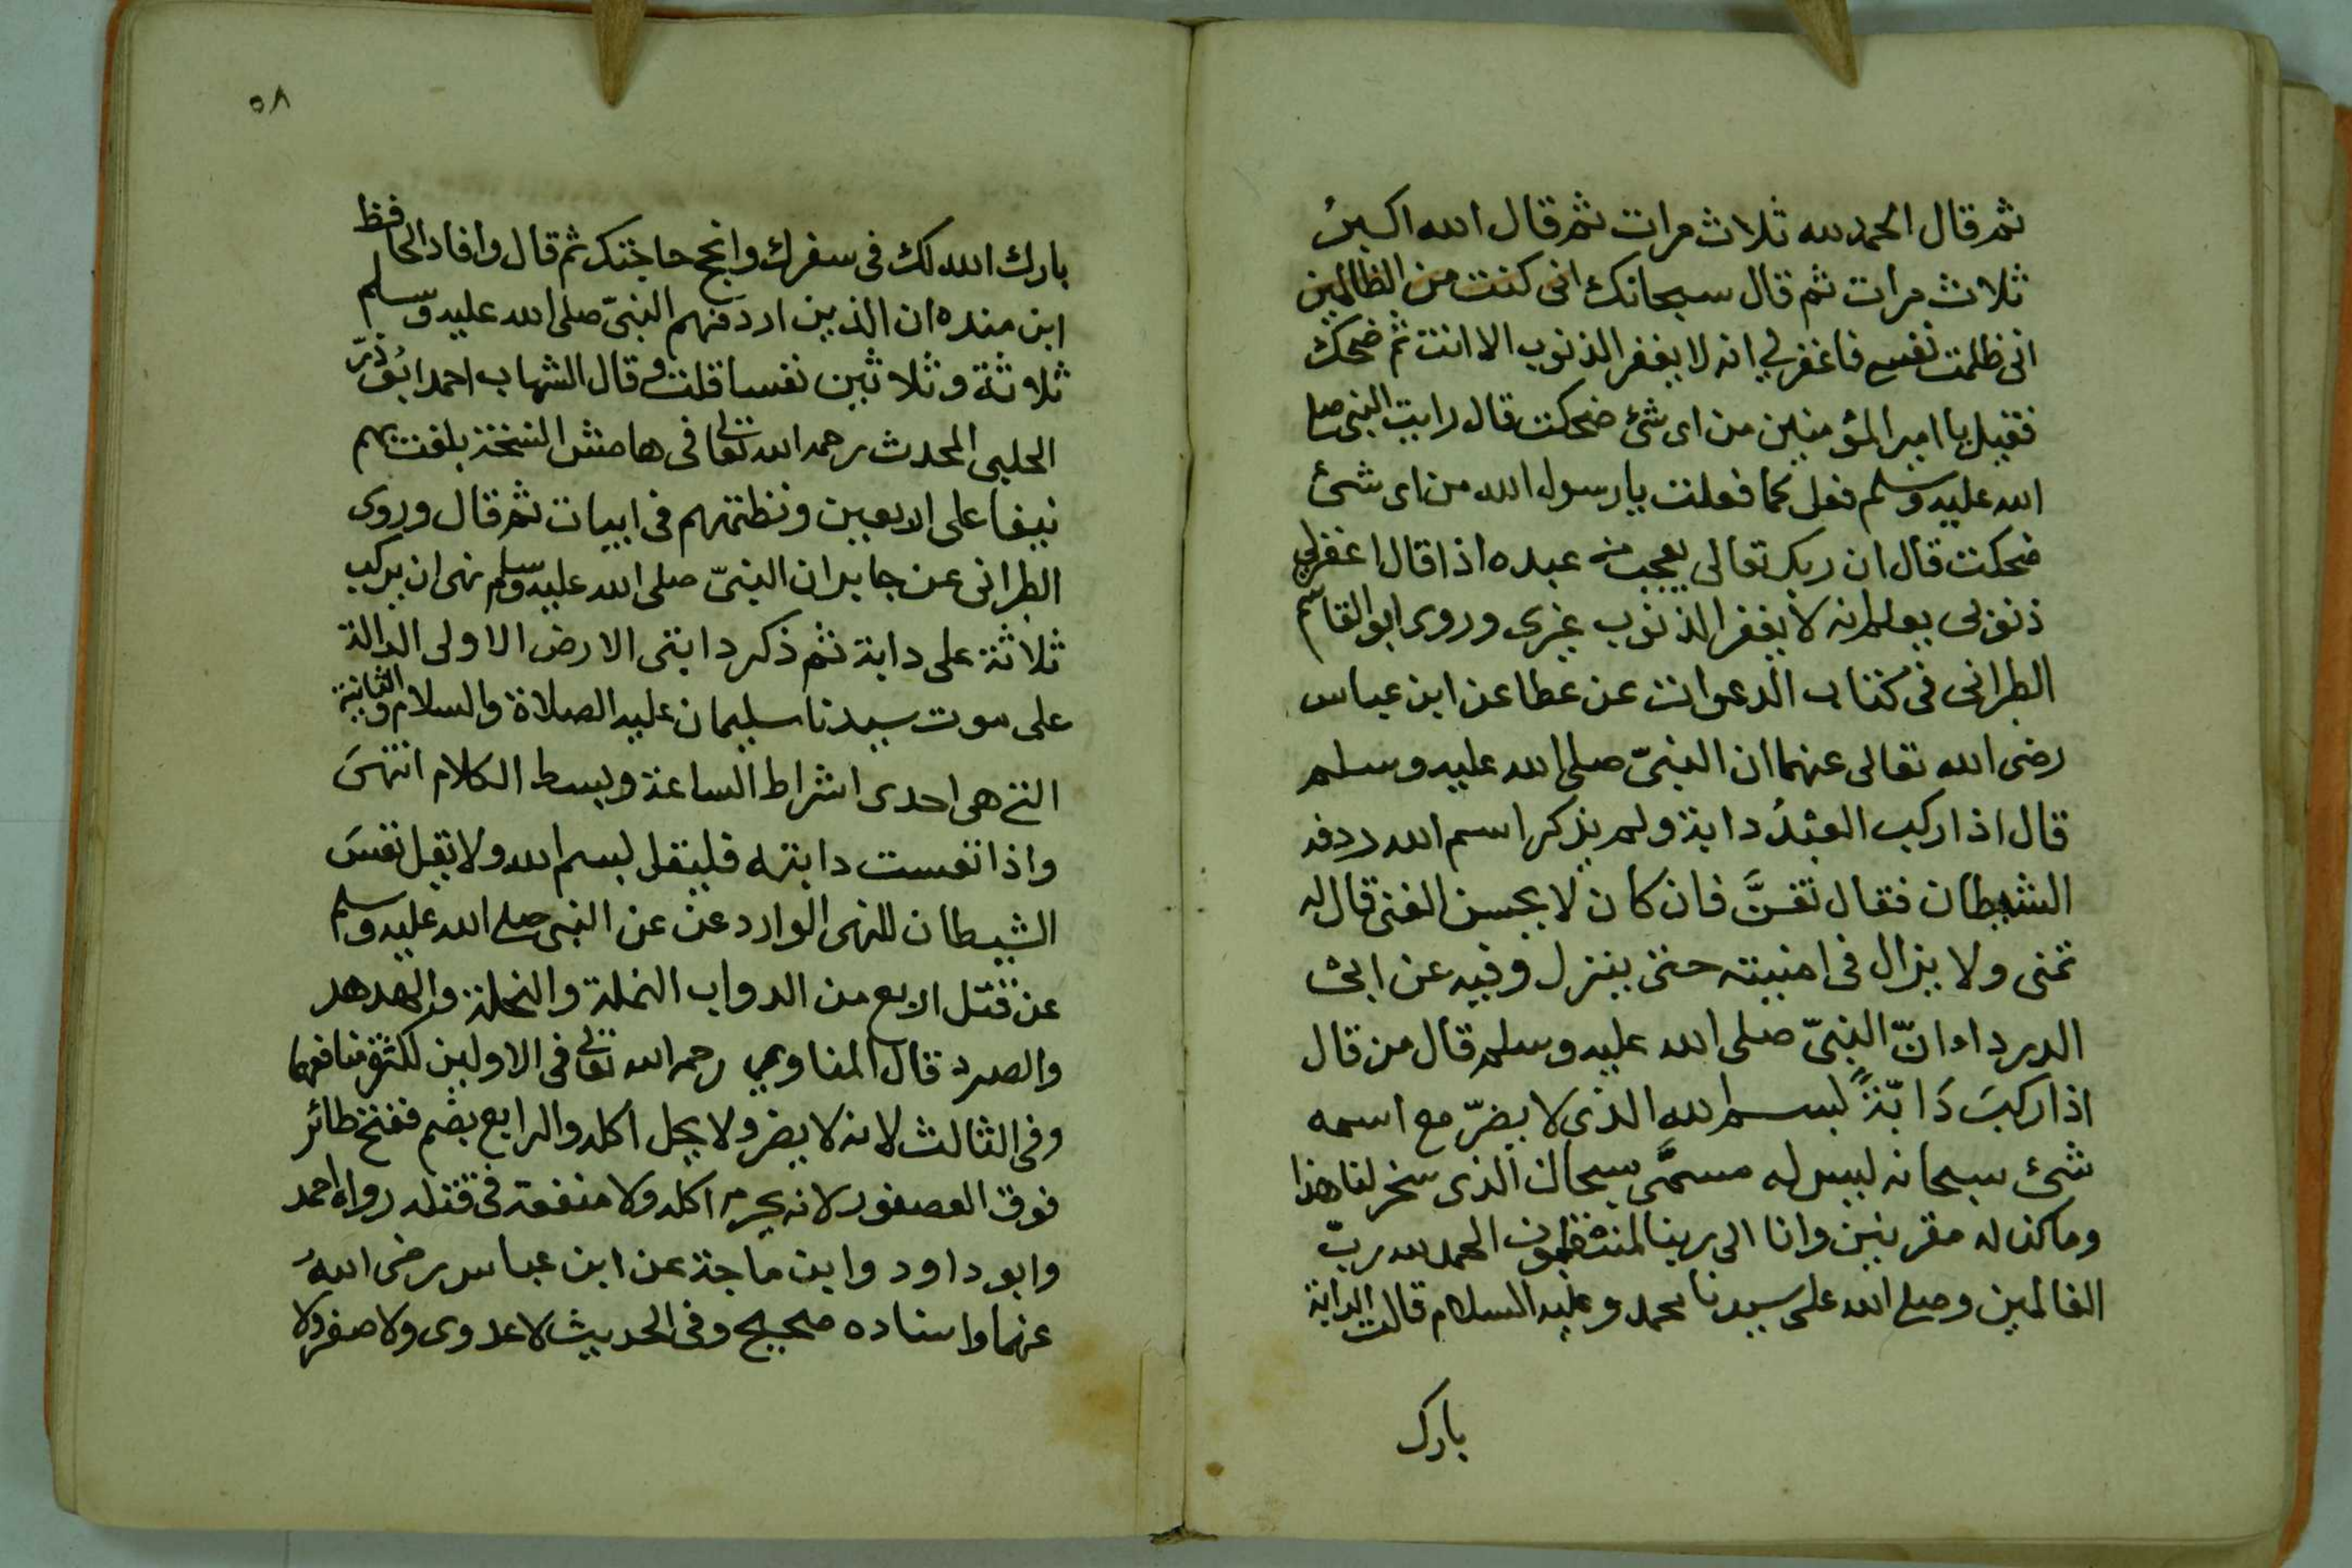 ثم قال الحمد لله ثلاث مرات ثم قال الله اكبر
ثلاث مرات ثم قال سبحانك انى كنت من الظالمين
انى ظلمت نفسى فاغفر لي انه لا يغفر الذنوب الا انت ثم ضحك
فقيل يا امير المؤمنين من اى شئ ضحكت قال رايت النبى صلى
الله عليه وسلم فعل كما فعلت يا رسول الله من اى شئ
ضحكت قال ان ربك تعالى يعجب من عبده اذا قال اغفر لي
ذنوبى يعلم انه لا يغفر الذنوب غيرى وروى ابو القاسم
الطبرانى فى كتاب الدعوات عن عطا عن ابن عباس
رضى الله تعالى عنهما ان النبىّ صلى الله عليه وسلم
قال اذا ركب العبدُ دابة ولم يذكر اسم الله ردفه
الشيطان فقال تغنَّ فان كان لا يحسن الغنى قال له
تمنى ولا يزال فى امنيته حتى ينزل وفيه عن ابى
الدرداء انّ النبىّ صلى الله عليه وسلم قال من قال
اذا ركبَ دَابّةً بسم الله الذى لا يضرّ مع اسمه
شئ سبحانه ليس له مسمَّى سبحان الذى سخر لنا هذا
وما كنا له مقرنين وانا الى ربنا لمنقلبون الحمد لله ربّ
العالمين وصلى الله على سيدنا محمد وعليه السلام قالت الدابة
بارك
٥٨
بارك الله لك فى سفرك وانجح حاجتك ثم قال وافاد الحافظ
ابن منده ان الذين اردفهم النبىّ صلى الله عليه وسلم
ثلاثة وثلاثين نفسا قلت وقال الشهاب احمد ابُو ذرّ
الحلبى المحدث رحمه الله تعالى فى هامش النسخة بلغت بهم
نيفا على الاربعين ونظمتهم فى ابيات ثم قال وروى
الطبرانى عن جابر ان النبىّ صلى الله عليه وسلم نهى ان يركب
ثلاثة على دابة ثم ذكر دابتى الارض الاولى الدالة
على موت سيدنا سليمان عليه الصلاة والسلام والثانية
التى هى احدى اشراط الساعة وبسط الكلام انتهىَ
واذا تعست دابته فليقل بسم الله ولا يقل تعسَ
الشيطان للنهى الوارد عن عن النبى صلى الله عليه وسلم
عن قتل اربع من الدواب النملة والنحلة والهدهد
والصرد قال المناوي رحمه الله تعالى فى الاولين لكثرة منافعهما
وفى الثالث لانه لا يضر ولا يحل اكله والرابع بضم ففتح طائر
فوق العصفور لانه يحرم اكله ولا منفعة فى قتله رواه احمد
وابو داود وابن ماجة عن ابن عباس رضى اللهُ
عنهما واسناده صحيح وفى الحديث لا عدوى ولا صفر ولا